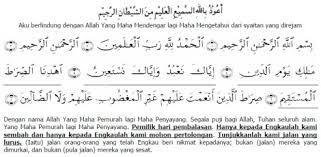 أعوذ بالله السميع العليم من الشيطان الرجيم
Aku berlindung dengan Allah Yang Maha Mendengar lagi Maha Mengetahui dari syaitan yang direjam
بِسْمِ اللَّهِ الرَّحْمَٰنِ الرَّحِيمِ ۝ الْحَمْدُ لِلَّهِ رَبِّ الْعَالَمِينَ ۝ الرَّحْمَٰنِ الرَّحِيمِ ۝
مَالِكِ يَوْمِ الدِّينِ ۝ إِيَّاكَ نَعْبُدُ وَإِيَّاكَ نَسْتَعِينُ ۝ اهْدِنَا الصِّرَاطَ
الْمُسْتَقِيمَ ۝ صِرَاطَ الَّذِينَ أَنْعَمْتَ عَلَيْهِمْ غَيْرِ الْمَغْضُوبِ عَلَيْهِمْ وَلَا الضَّالِّينَ ۝
Dengan nama Allah Yang Maha Pemurah lagi Maha Penyayang. Segala puji bagi Allah, Tuhan seluruh alam.
Yang Maha Pemurah lagi Maha Penyayang. Pemilik hari pembalasan. Hanya kepada Engkaulah kami
sembah dan hanya kepada Engkaulah kami mohon pertolongan. Tunjukkanlah kami jalan yang
lurus. (Iaitu) jalan orang-orang yang telah Engkau beri nikmat kepadanya; bukan (jalan) mereka yang
dimurkai, dan bukan (pula jalan) mereka yang sesat.